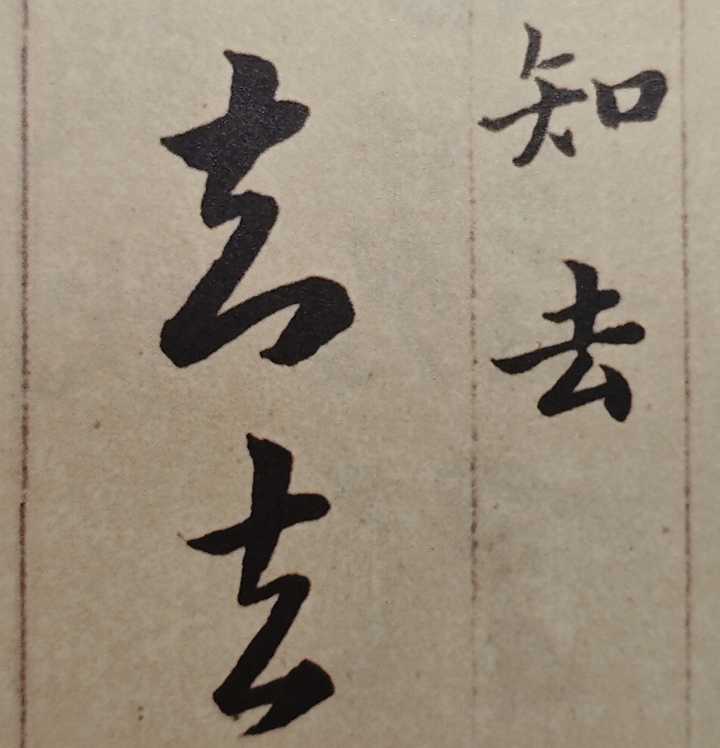 知去
去去